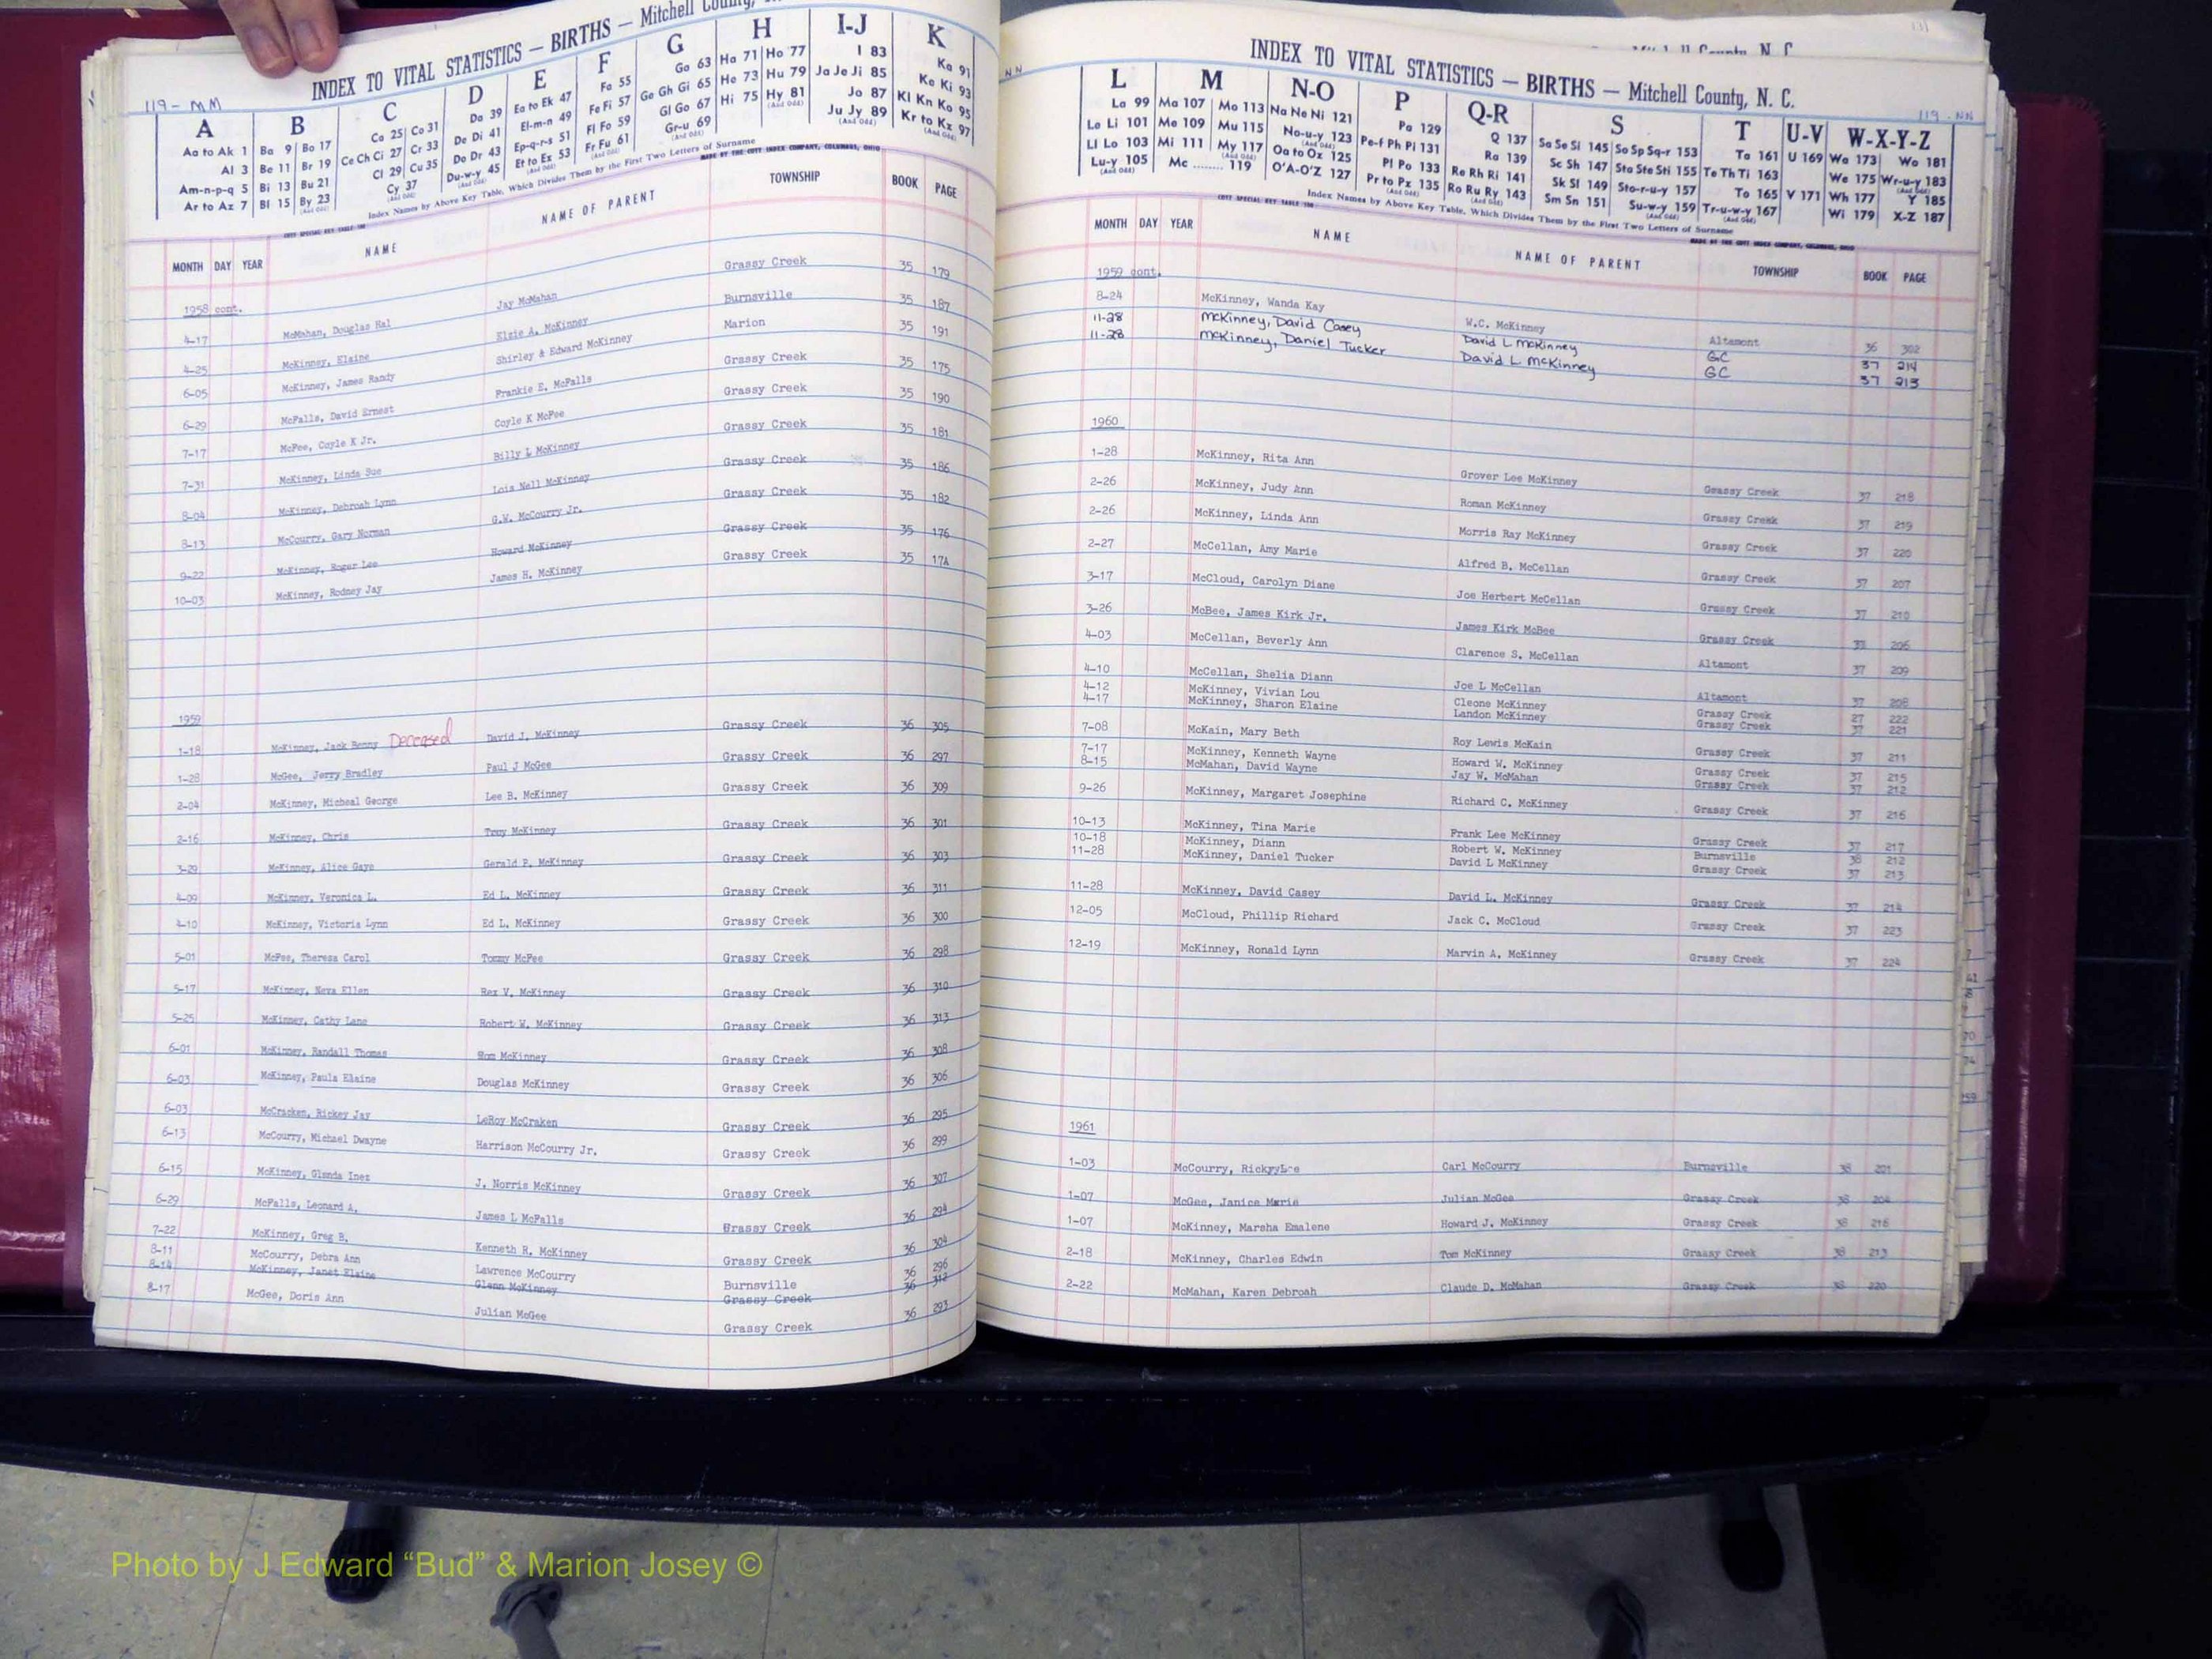 INDEX TO VITAL STATISTICS — BIRTHS — Mitchell County,
119 - MM
A B C D E F G H I-J K
Aa to Ak 1 Ba 9 Bo 17 Ca 25 Co 31 Da 39 Ea to Ek 47 Fa 55 Ga 63 Ha 71 Ho 77 I 83 Ka 91
Al 3 Be 11 Br 19 Ce Ch Ci 27 Cr 33 De Di 41 El-m-n 49 Fe Fi 57 Ge Gh Gi 65 He 73 Hu 79 Ja Je Ji 85 Ke Ki 93
Am-n-p-q 5 Bi 13 Bu 21 Cl 29 Cu 35 Do Dr 43 Ep-q-r-s 51 Fl Fo 59 Gl Go 67 Hi 75 Hy 81 Jo 87 Kl Kn Ko 95
Ar to Az 7 Bl 15 By 23 Cy 37 Du-w-y 45 Et to Ez 53 Fr Fu 61 Gr-u 69 Ju Jy 89 Kr to Kz 97
Index Names by Above Key Table, Which Divides Them by the First Two Letters of Surname
MADE BY THE COTT INDEX COMPANY, COLUMBUS, OHIO
MONTH DAY YEAR NAME NAME OF PARENT TOWNSHIP BOOK PAGE
1958 cont.
4-17 McMahan, Douglas Hal Jay McMahan Grassy Creek 35 179
4-25 McKinney, Elaine Elzie A. McKinney Burnsville 35 187
6-05 McKinney, James Randy Shirley & Edward McKinney Marion 35 191
6-29 McFalls, David Ernest Frankie E. McFalls Grassy Creek 35 175
7-17 McFee, Coyle K Jr. Coyle K McFee Grassy Creek 35 190
7-31 McKinney, Linda Sue Billy L McKinney Grassy Creek 35 181
8-04 McKinney, Debroah Lynn Lois Nell McKinney Grassy Creek 35 186
8-13 McCourry, Gary Norman G.W. McCourry Jr. Grassy Creek 35 182
9-22 McKinney, Roger Lee Howard McKinney Grassy Creek 35 176
10-03 McKinney, Rodney Jay James H. McKinney Grassy Creek 35 17A
1959
1-18 McKinney, Jack Benny Deceased David J. McKinney Grassy Creek 36 305
1-28 McGee, Jerry Bradley Paul J McGee Grassy Creek 36 297
2-04 McKinney, Micheal George Lee B. McKinney Grassy Creek 36 309
2-16 McKinney, Chris Troy McKinney Grassy Creek 36 301
3-29 McKinney, Alice Gaye Gerald P. McKinney Grassy Creek 36 303
4-09 McKinney, Veronica L. Ed L. McKinney Grassy Creek 36 311
4-10 McKinney, Victoria Lynn Ed L. McKinney Grassy Creek 36 300
5-01 McFee, Theresa Carol Tommy McFee Grassy Creek 36 298
5-17 McKinney, Neva Ellen Rex V. McKinney Grassy Creek 36 310
5-25 McKinney, Cathy Lane Robert W. McKinney Grassy Creek 36 313
6-01 McKinney, Randall Thomas McKinney Grassy Creek 36 308
6-03 McKinney, Paula Elaine Douglas McKinney Grassy Creek 36 306
6-03 McCracken, Rickey Jay LeRoy McCraken Grassy Creek 36 295
6-13 McCourry, Michael Dwayne Harrison McCourry Jr. Grassy Creek 36 299
6-15 McKinney, Glenda Inez J. Norris McKinney Grassy Creek 36 307
6-29 McFalls, Leonard A. James L McFalls Brassy Creek 36 294
7-22 McKinney, Greg B. Kenneth R. McKinney Grassy Creek 36 304
8-11 McCourry, Debra Ann Lawrence McCourry Burnsville 36 296
8-14 McKinney, Janet Elaine Glenn McKinney Grassy Creek 36 312
8-17 McGee, Doris Ann Julian McGee Grassy Creek 36 293
INDEX TO VITAL STATISTICS — BIRTHS — Mitchell County, N. C.
119 - NN
L M N-O P Q-R S T U-V W-X-Y-Z
La 99 Ma 107 Mo 113 Na Ne Ni 121 Pa 129 Q 137 Sa Se Si 145 So Sp Sq-r 153 Ta 161 U 169 Wa 173 Wo 181
Le Li 101 Me 109 Mu 115 No-u-y 123 Pe-f Ph Pi 131 Ra 139 Sc Sh 147 Sta Ste Sti 155 Te Th Ti 163 We 175 Wr-u-y 183
Ll Lo 103 Mi 111 My 117 Oa to Oz 125 Pl Po 133 Re Rh Ri 141 Sk Sl 149 Sto-r-u-y 157 To 165 V 171 Wh 177 Y 185
Lu-y 105 Mc ........ 119 O'A-O'Z 127 Pr to Pz 135 Ro Ru Ry 143 Sm Sn 151 Su-w-y 159 Tr-u-w-y 167 Wi 179 X-Z 187
Index Names by Above Key Table, Which Divides Them by the First Two Letters of Surname
MADE BY THE COTT INDEX COMPANY, COLUMBUS, OHIO
MONTH DAY YEAR NAME NAME OF PARENT TOWNSHIP BOOK PAGE
1959 cont.
8-24 McKinney, Wanda Kay W.C. McKinney Altamont 36 302
11-28 McKinney, David Casey David L McKinney GC 37 214
11-28 McKinney, Daniel Tucker David L McKinney GC 37 213
1960
1-28 McKinney, Rita Ann Grover Lee McKinney Grassy Creek 37 218
2-26 McKinney, Judy Ann Roman McKinney Grassy Creek 37 219
2-26 McKinney, Linda Ann Morris Ray McKinney Grassy Creek 37 220
2-27 McCellan, Amy Marie Alfred B. McCellan Grassy Creek 37 207
3-17 McCloud, Carolyn Diane Joe Herbert McCellan Grassy Creek 37 210
3-26 McBee, James Kirk Jr. James Kirk McBee Grassy Creek 206
4-03 McCellan, Beverly Ann Clarence S. McCellan Altamont 37 209
4-10 McCellan, Shelia Diann Joe L McCellan Altamont 37 208
4-12 McKinney, Vivian Lou Cleone McKinney Grassy Creek 27 222
4-17 McKinney, Sharon Elaine Landon McKinney Grassy Creek 37 221
7-08 McKain, Mary Beth Roy Lewis McKain Grassy Creek 37 211
7-17 McKinney, Kenneth Wayne Howard W. McKinney Grassy Creek 37 215
8-15 McMahan, David Wayne Jay W. McMahan Grassy Creek 37 212
9-26 McKinney, Margaret Josephine Richard C. McKinney Grassy Creek 37 216
10-13 McKinney, Tina Marie Frank Lee McKinney Grassy Creek 37 217
10-18 McKinney, Diann Robert W. McKinney Burnsville 38 212
11-28 McKinney, Daniel Tucker David L McKinney Grassy Creek 37 213
11-28 McKinney, David Casey David L. McKinney Grassy Creek 37 214
12-05 McCloud, Phillip Richard Jack C. McCloud Grassy Creek 37 223
12-19 McKinney, Ronald Lynn Marvin A. McKinney Grassy Creek 37 224
1961
1-03 McCourry, Carl McCourry Burnsville 38 201
1-07 McGee, Janice Marie Julian McGee Grassy Creek 38 204
1-07 McKinney, Marsha Emalene Howard J. McKinney Grassy Creek 38 216
2-18 McKinney, Charles Edwin Tom McKinney Grassy Creek 38 213
2-22 McMahan, Karen Debroah Claude D. McMahan Grassy Creek 38 220
Photo by J Edward “Bud” & Marion Josey ©